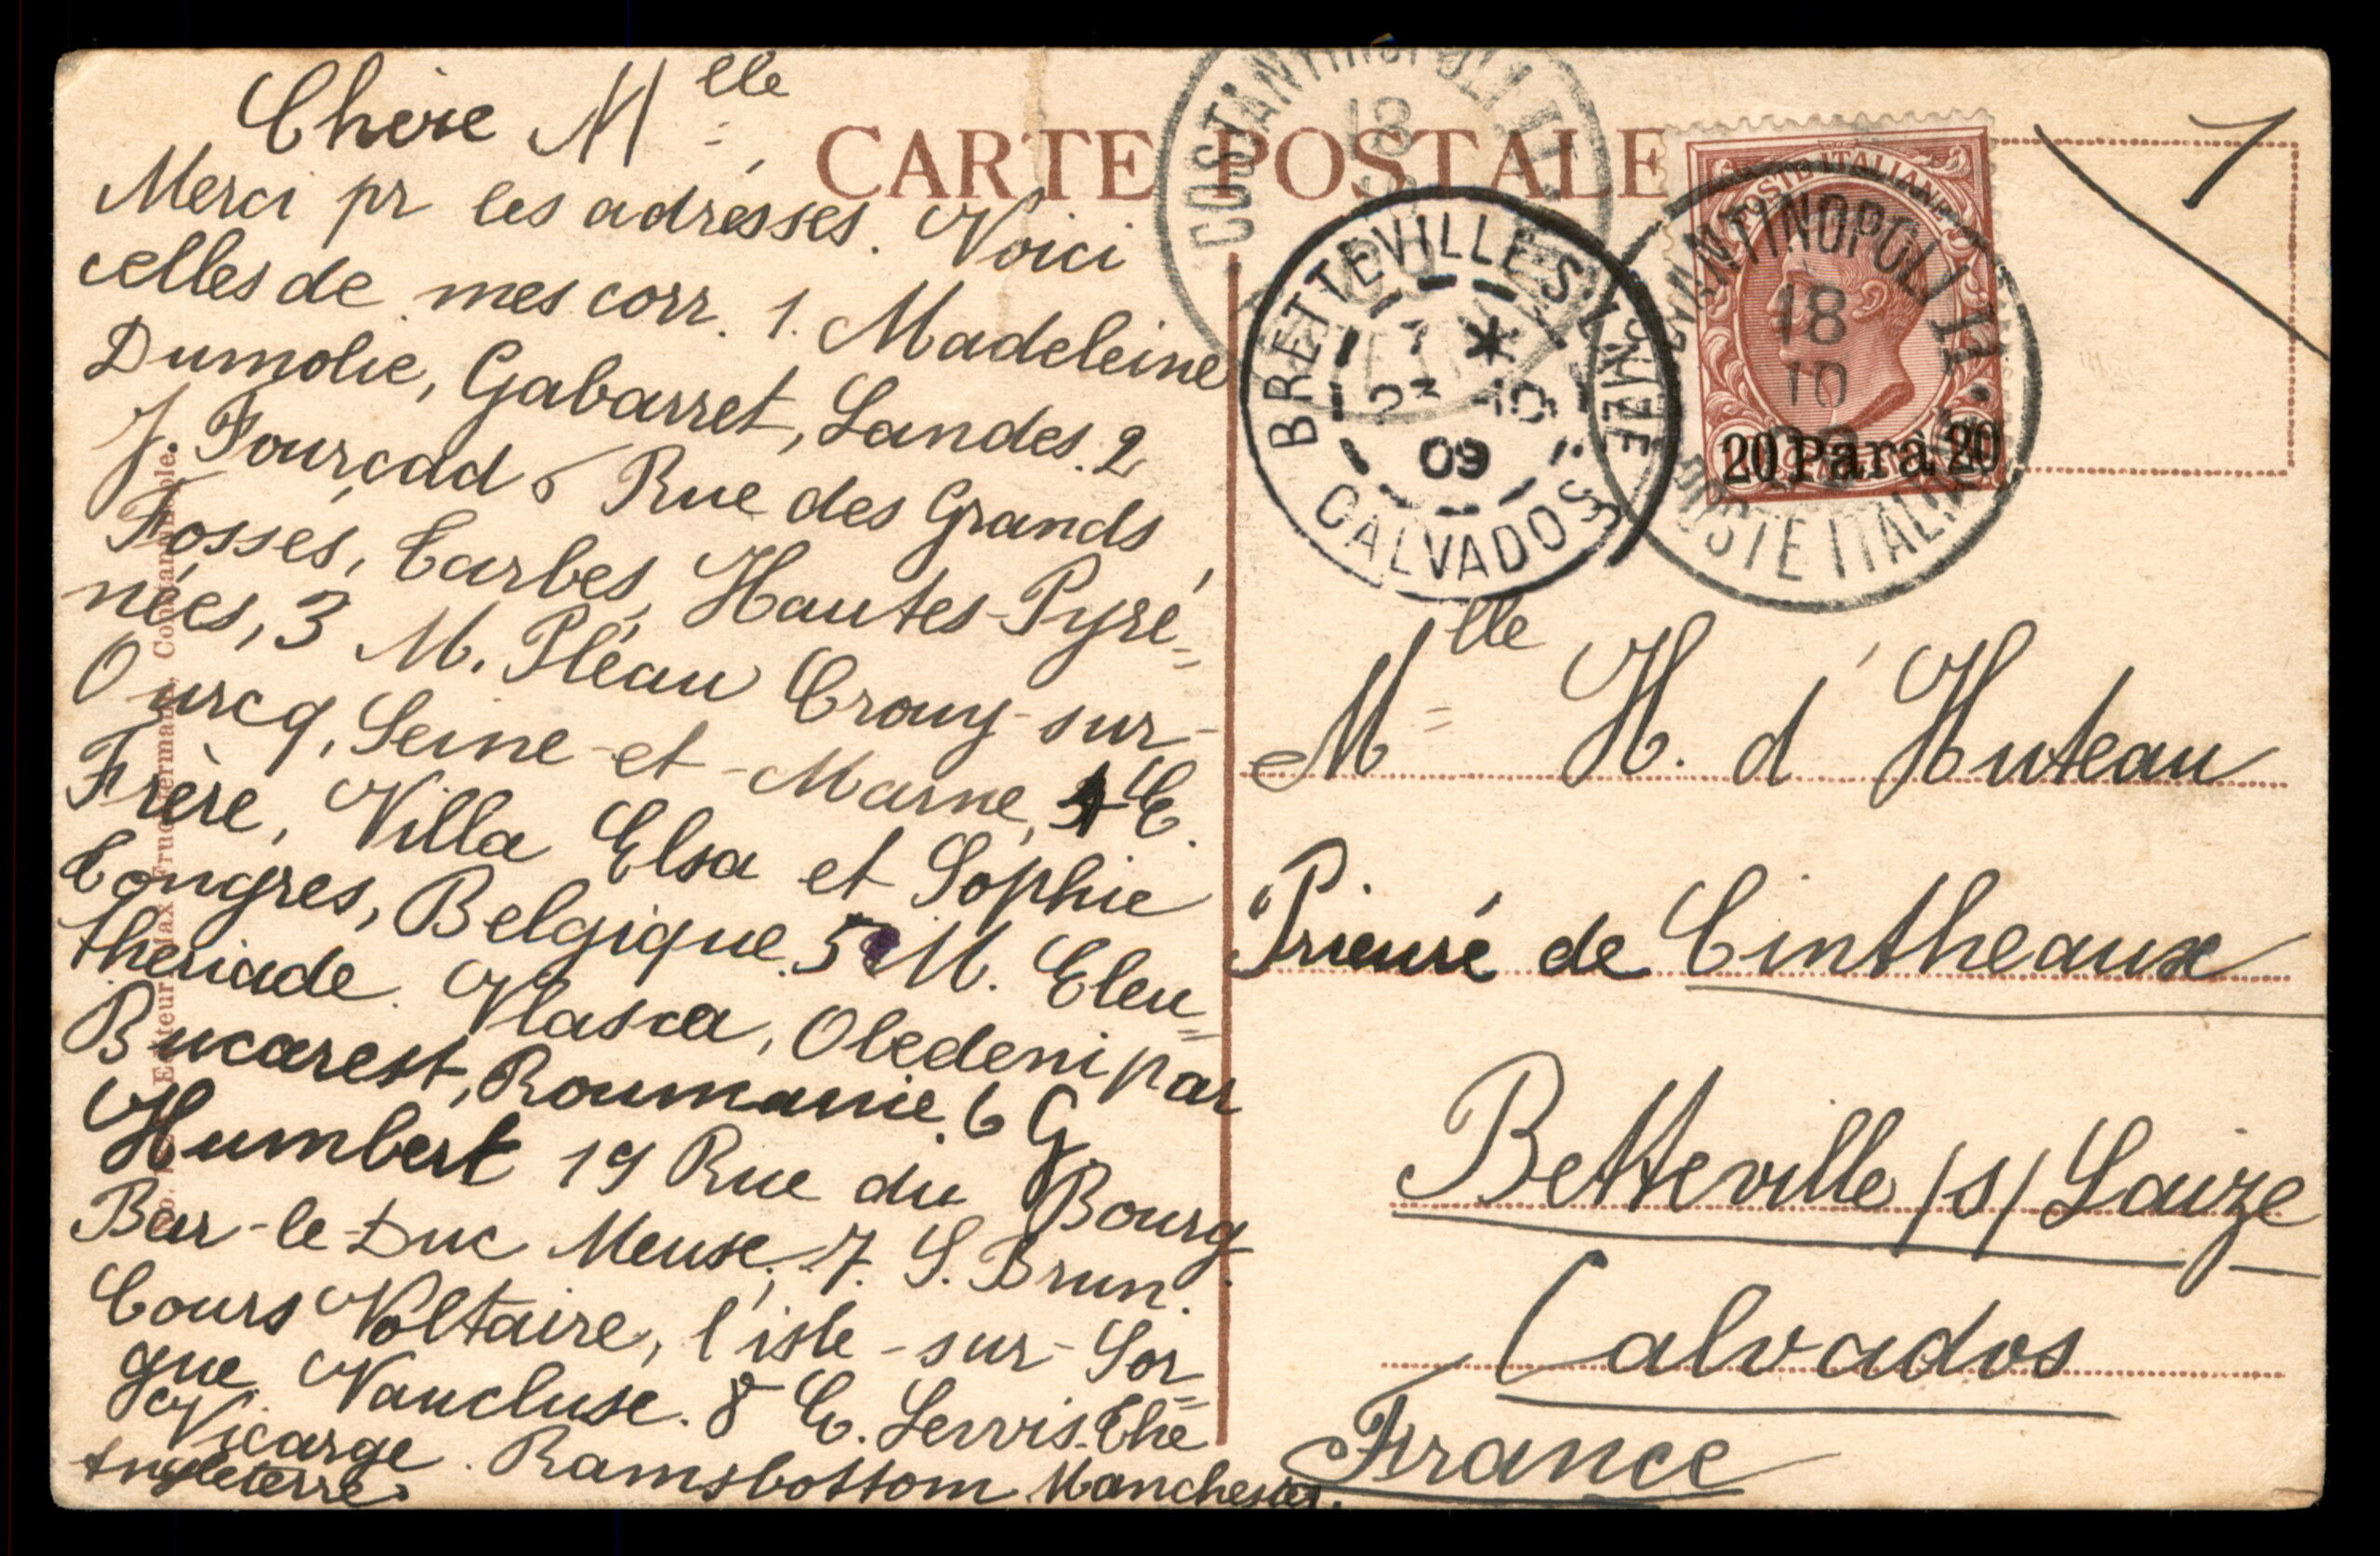 Chère M lle,
Merci pr les adresses. Voici
celles de mes corr. 1. Madeleine
Dumolie, Gabarret, Landes. 2
J. Fourcad 6 Rue des Grands
Fossés, Tarbes, Hautes-Pyré=
nées, 3 M. Pléau Crouy-sur-
Ourcq, Seine-et-Marne, 4 C.
Frère, Villa Elsa et Sophie
Tongres, Belgique. 5 M. Eleu=
theriade. Vlasca, Obedeni par
Bucarest, Roumanie. 6 G.
Humbert 19 Rue du Bourg.
Bar-le-Duc Meuse, 7. S. Brun.
Cours Voltaire, l'isle-sur-Sor=
gue. Vaucluse. 8 C. Lewis. The
Vicarge. Ramsbottom Manchester.
Angleterre.
CARTE POSTALE
COSTANTINOPOLI
18
BRETTEVILLE-S-LAIZE
7 *
23 -10
09
CALVADOS
POSTE ITALIANE
20 Para 20
COSTANTINOPOLI
18
10
POSTE ITALIANE
1
M lle H. d'Huteau
Prieuré de Cintheaux
Betteville /s/ Laize
Calvados
France
Editeur Max Fruchtermann, Constantinople.